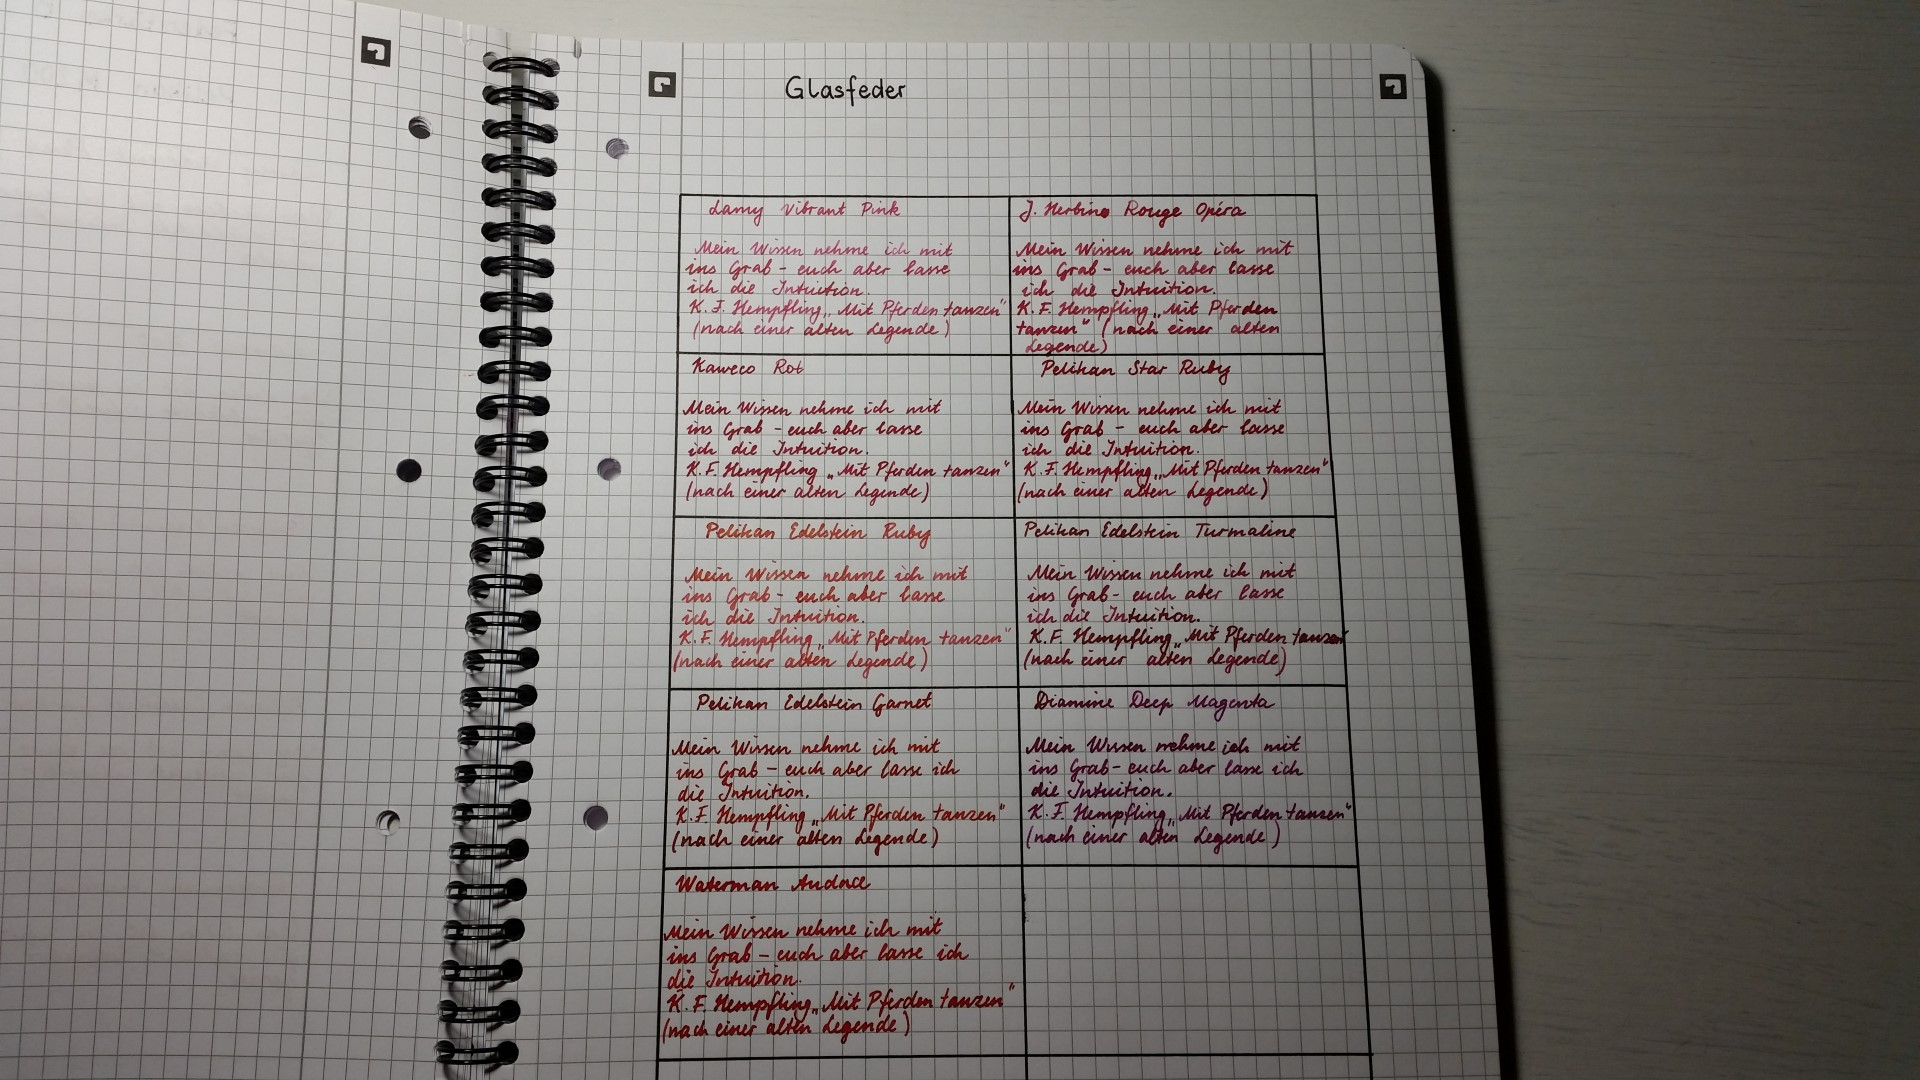 Glasfeder
Lamy Vibrant Pink
Mein Wissen nehme ich mit
ins Grab - euch aber lasse
ich die Intuition.
K. F. Hempfling „Mit Pferden tanzen"
(nach einer alten Legende)
J. Herbine Rouge Opéra
Mein Wissen nehme ich mit
ins Grab - euch aber lasse
ich die Intuition.
K. F. Hempfling „Mit Pferden
tanzen" (nach einer alten
Legende)
Kaweco Rot
Mein Wissen nehme ich mit
ins Grab - euch aber lasse
ich die Intuition.
K. F. Hempfling „Mit Pferden tanzen"
(nach einer alten Legende)
Pelikan Star Ruby
Mein Wissen nehme ich mit
ins Grab - euch aber lasse
ich die Intuition.
K. F. Hempfling „Mit Pferden tanzen"
(nach einer alten Legende)
Pelikan Edelstein Ruby
Mein Wissen nehme ich mit
ins Grab - euch aber lasse
ich die Intuition.
K. F. Hempfling „Mit Pferden tanzen"
(nach einer alten Legende)
Pelikan Edelstein Turmaline
Mein Wissen nehme ich mit
ins Grab - euch aber lasse
ich die Intuition.
K. F. Hempfling „Mit Pferden tanzen"
(nach einer alten Legende)
Pelikan Edelstein Garnet
Mein Wissen nehme ich mit
ins Grab - euch aber lasse ich
die Intuition.
K. F. Hempfling „Mit Pferden tanzen"
(nach einer alten Legende)
Diamine Deep Magenta
Mein Wissen nehme ich mit
ins Grab - euch aber lasse ich
die Intuition.
K. F. Hempfling „Mit Pferden tanzen"
(nach einer alten Legende)
Waterman Audace
Mein Wissen nehme ich mit
ins Grab - euch aber lasse ich
die Intuition.
K. F. Hempfling „Mit Pferden tanzen"
(nach einer alten Legende)